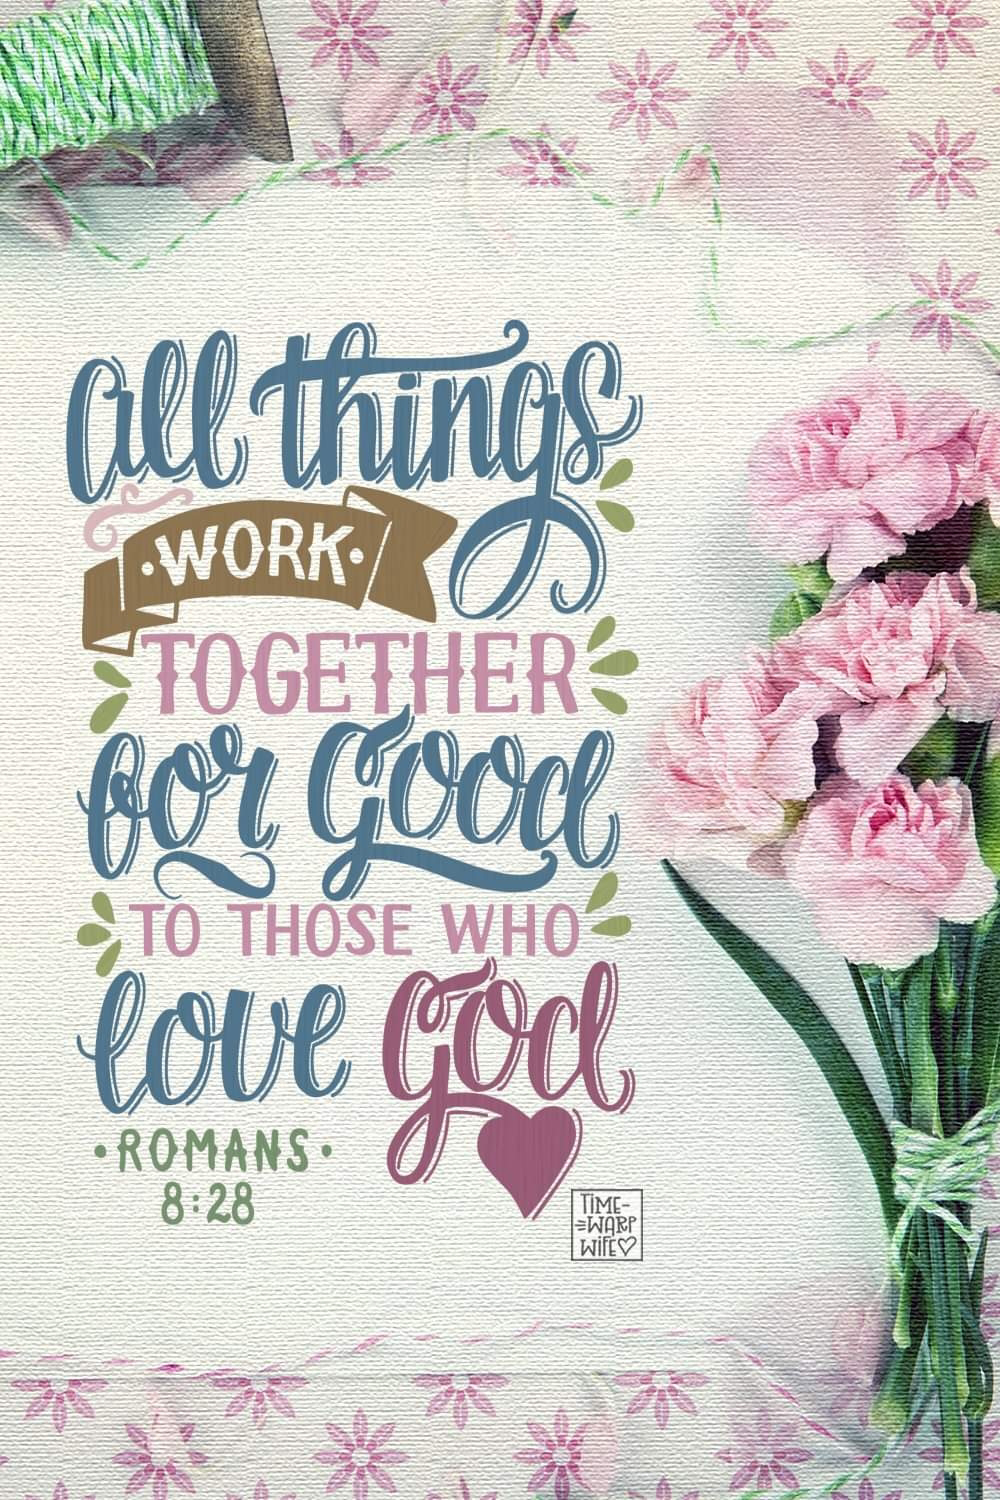 all things
•WORK•
TOGETHER
for Good
TO THOSE WHO
love God
•ROMANS•
8:28
TIME-
WARP
WIFE♡